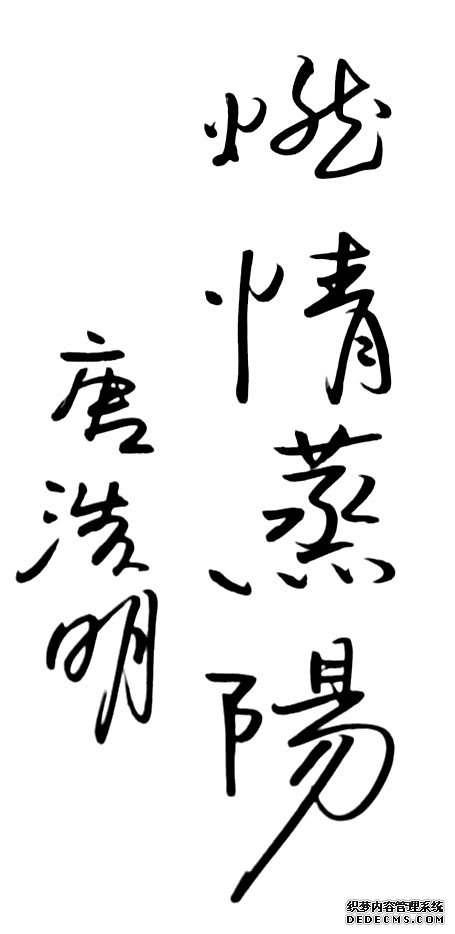 燃情蒸陽
唐浩明
织梦内容管理系统
DEDECMS.COM